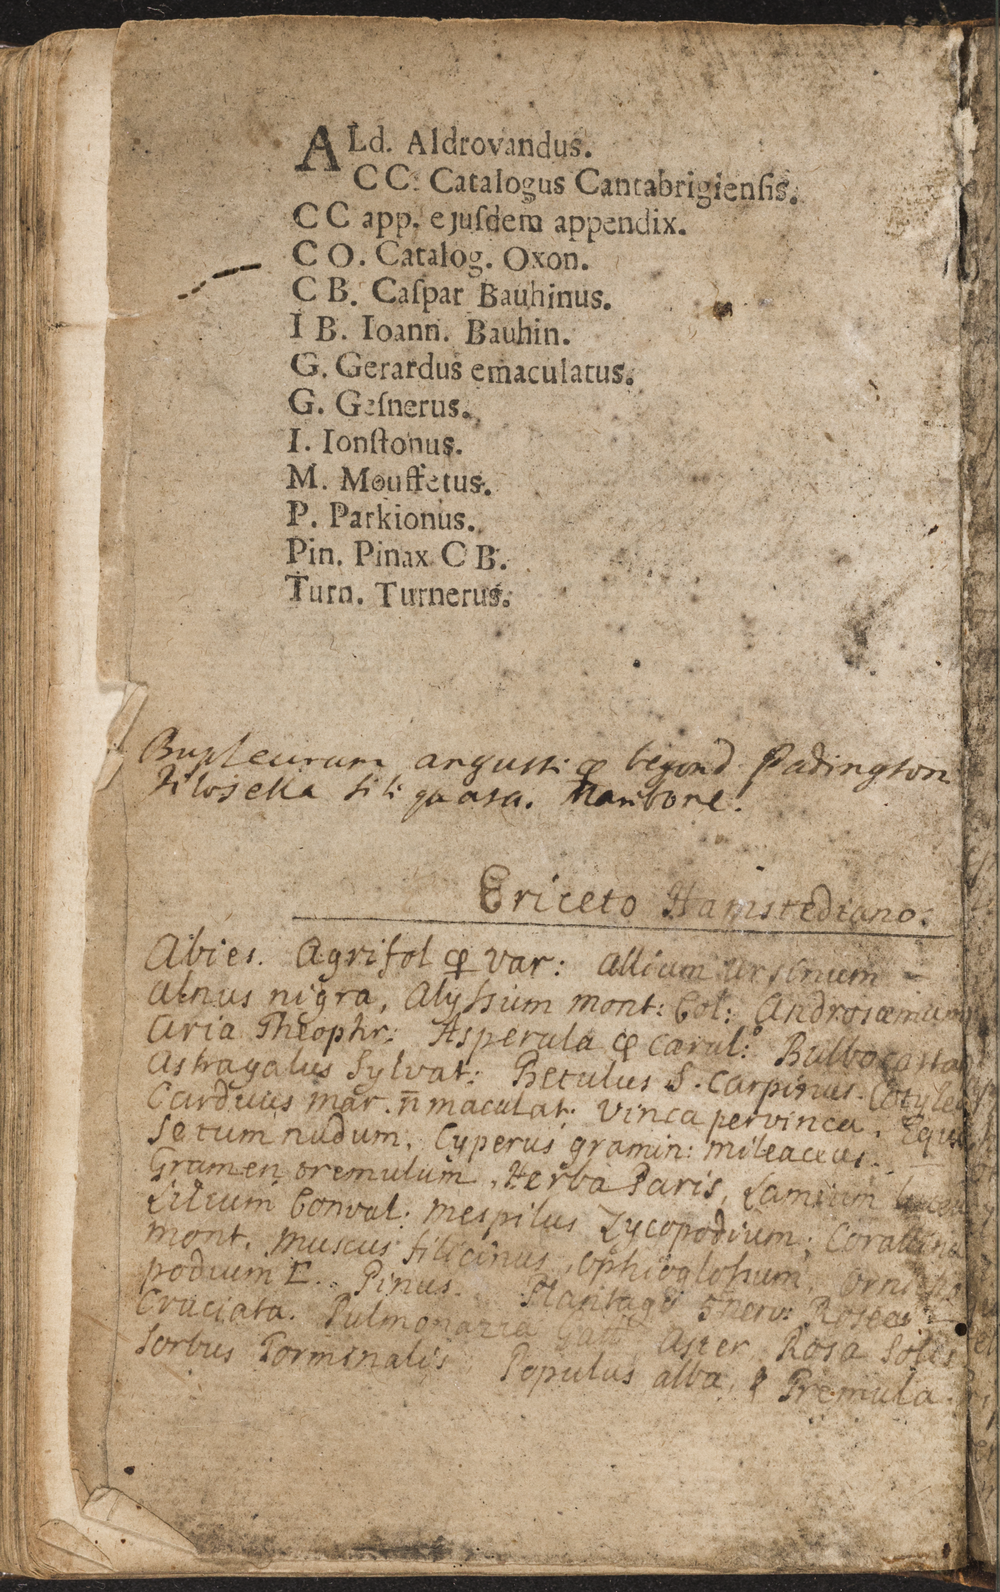 ALd. Aldrovandus.
CC. Catalogus Cantabrigienſis.
CC app. ejuſdem appendix.
CO. Catalog. Oxon.
CB. Caſpar Bauhinus.
IB. Ioann. Bauhin.
G. Gerardus emaculatus.
G. Geſnerus.
I. Ionſtonus.
M. Mouffetus.
P. Parkionus.
Pin. Pinax CB.
Turn. Turnerus.
Bupleurum angusti beyond Padington
Piloselle siliquosa. Maribone.
Ericeto Hamstediano.
Abies. Agrifol var: Allium ursinum
Alnus nigra, Alyssium mont: Col: Androsæmum
Aria Theophr: Asperula cærul: Bulbocasta
Astragalus Sylvat: Betulus S. Carpinus. Cotyled
Carduus mar. n̄ maculat: Vinca pervinca. Equi
setum nudum. Cyperus gramin: mileaceus.
Gramen tremulum. Herba Paris, Lamium
Lilium Conval: Mespilus Lycopodium: Corallina
mont. Muscus filicinus, Ophioglossum, Orni
podium E.. Pinus. Plantago 5nerv: Roseo
Cruciata. Pulmonaria Gall Aster Rosa Solis
Sorbus Torminalis Populus alba, & Tremula